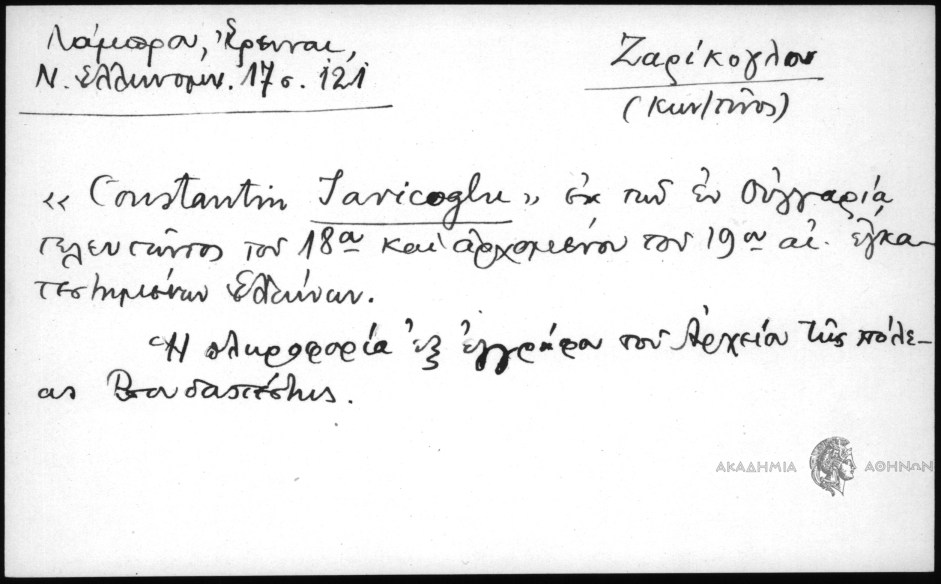 Λάμπρου, Ἔρευναι,
Ν. Ἑλληνομν. 17 σ. 121
Ζαρίκογλου
(Κων/τῖνος)
« Constantin Saricoglu » ἐκ τῶν ἐν Οὑγγαρίᾳ
τελευτῶντος τοῦ 18ου καὶ ἀρχομένου τοῦ 19ου αἰ. ἐγκα-
τεστημένων Ἑλλήνων.
Ἡ πληροφορία ἐξ ἐγγράφου τοῦ Ἀρχείου τῆς πόλε-
ως Βουδαπέστης.
ΑΚΑΔΗΜΙΑ ΑΘΗΝΩΝ